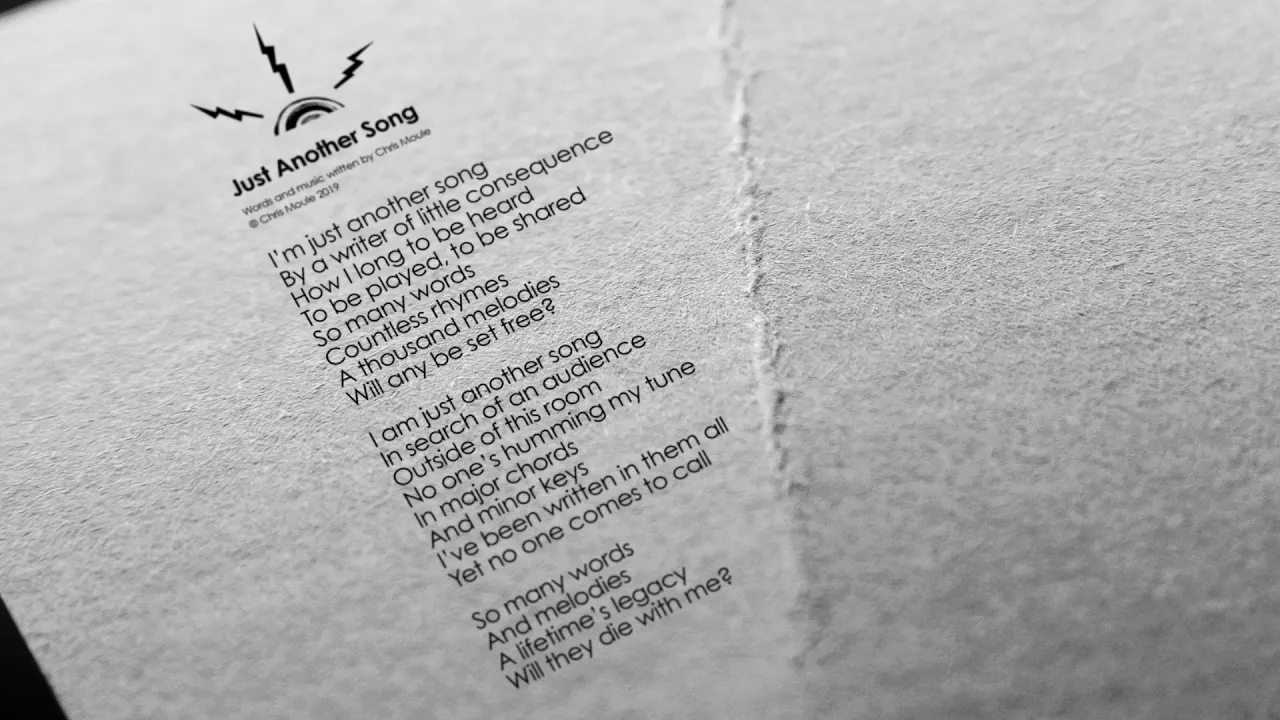 Just Another Song
Words and music written by Chris Moule
© Chris Moule 2019
I'm just another song
By a writer of little consequence
How I long to be heard
To be played, to be shared
So many words
Countless rhymes
A thousand melodies
Will any be set free?
I am just another song
In search of an audience
Outside of this room
No one's humming my tune
In major chords
And minor keys
I've been written in them all
Yet no one comes to call
So many words
And melodies
A lifetime's legacy
Will they die with me?